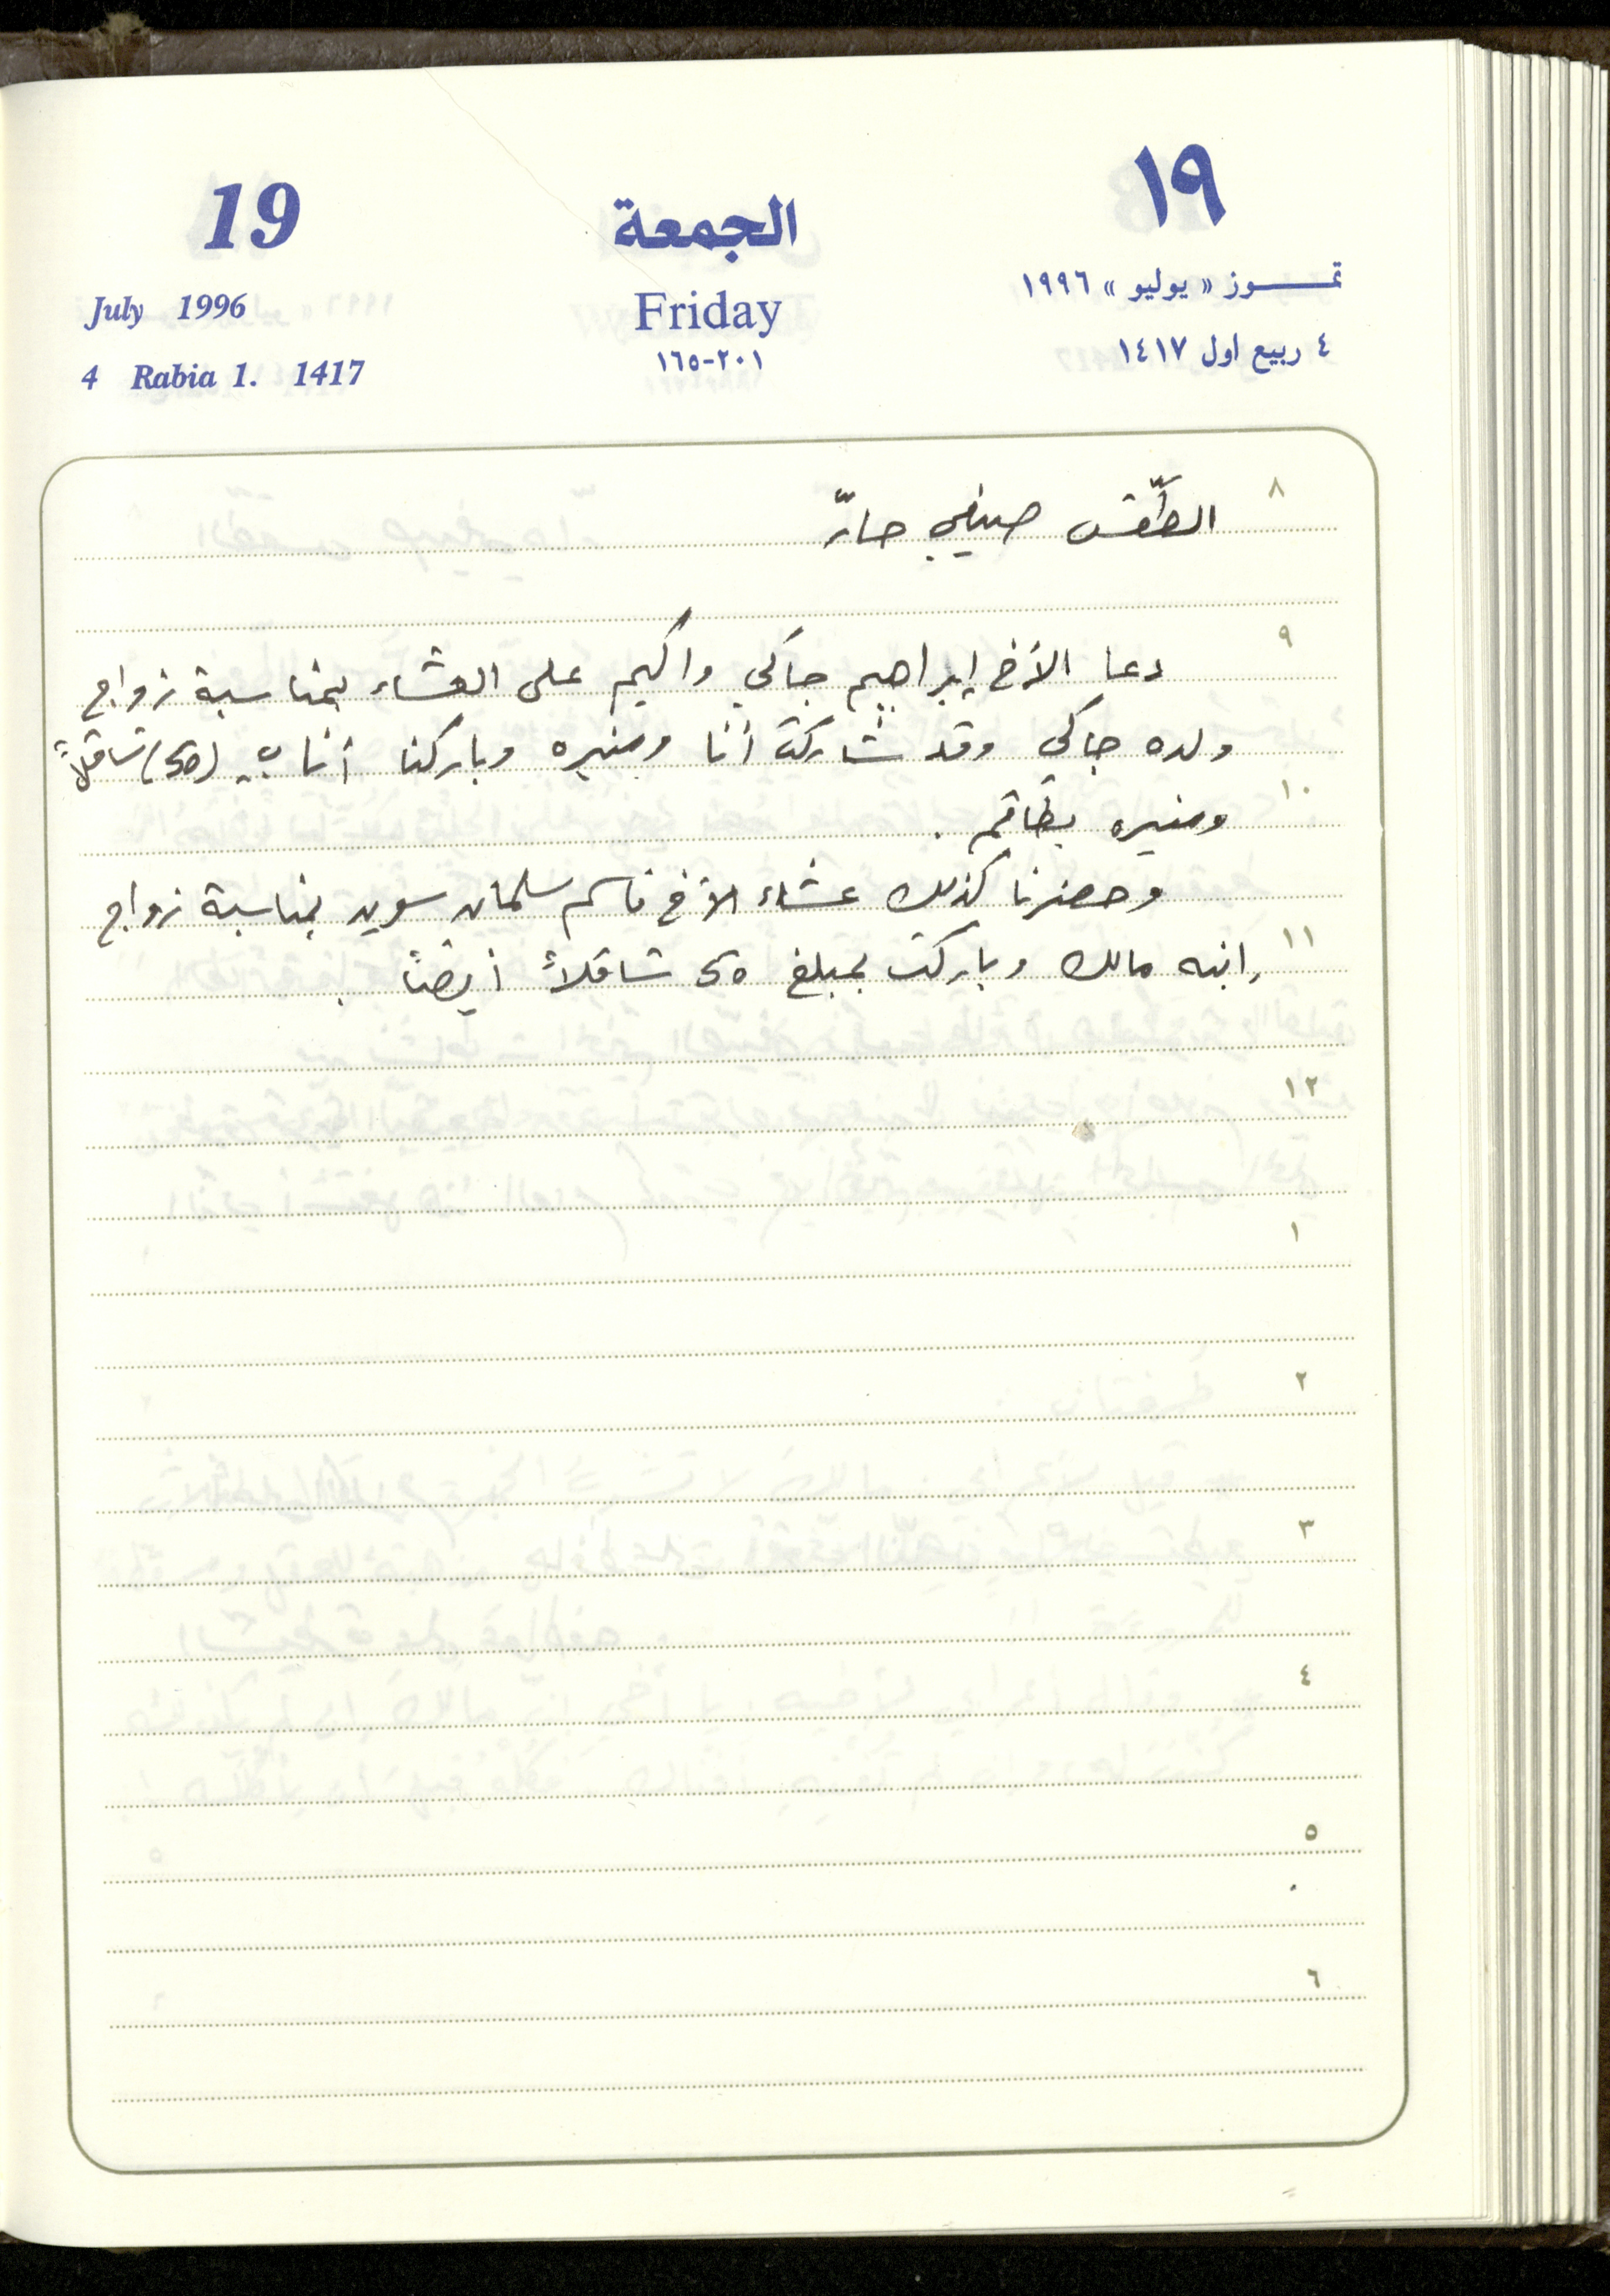 19 الجمعة ١٩
July 1996 Friday تمـــوز « يوليو » ١٩٩٦
4 Rabia 1. 1417 ٢٠١-١٦٥ ٤ ربيع اول ١٤١٧
٨ الطّقس صيفي حارّ
٩
دعا الأخ إبراهيم جاكي واكيم على العشاء بمناسبة زواج
ولده جاكي وقد شاركت أنا ومنيره وباركنا أنا بـ (50) شاقلاً
١٠
ومنيره بطاقم .
وحضرنا كذلك عشاء الأخ قاسم سلمان سويد بمناسبة زواج
١١ ابنه مالك وباركت بمبلغ 50 شاقلاً أيضًا .
١٢
١
٢
٣
٤
٥
٦